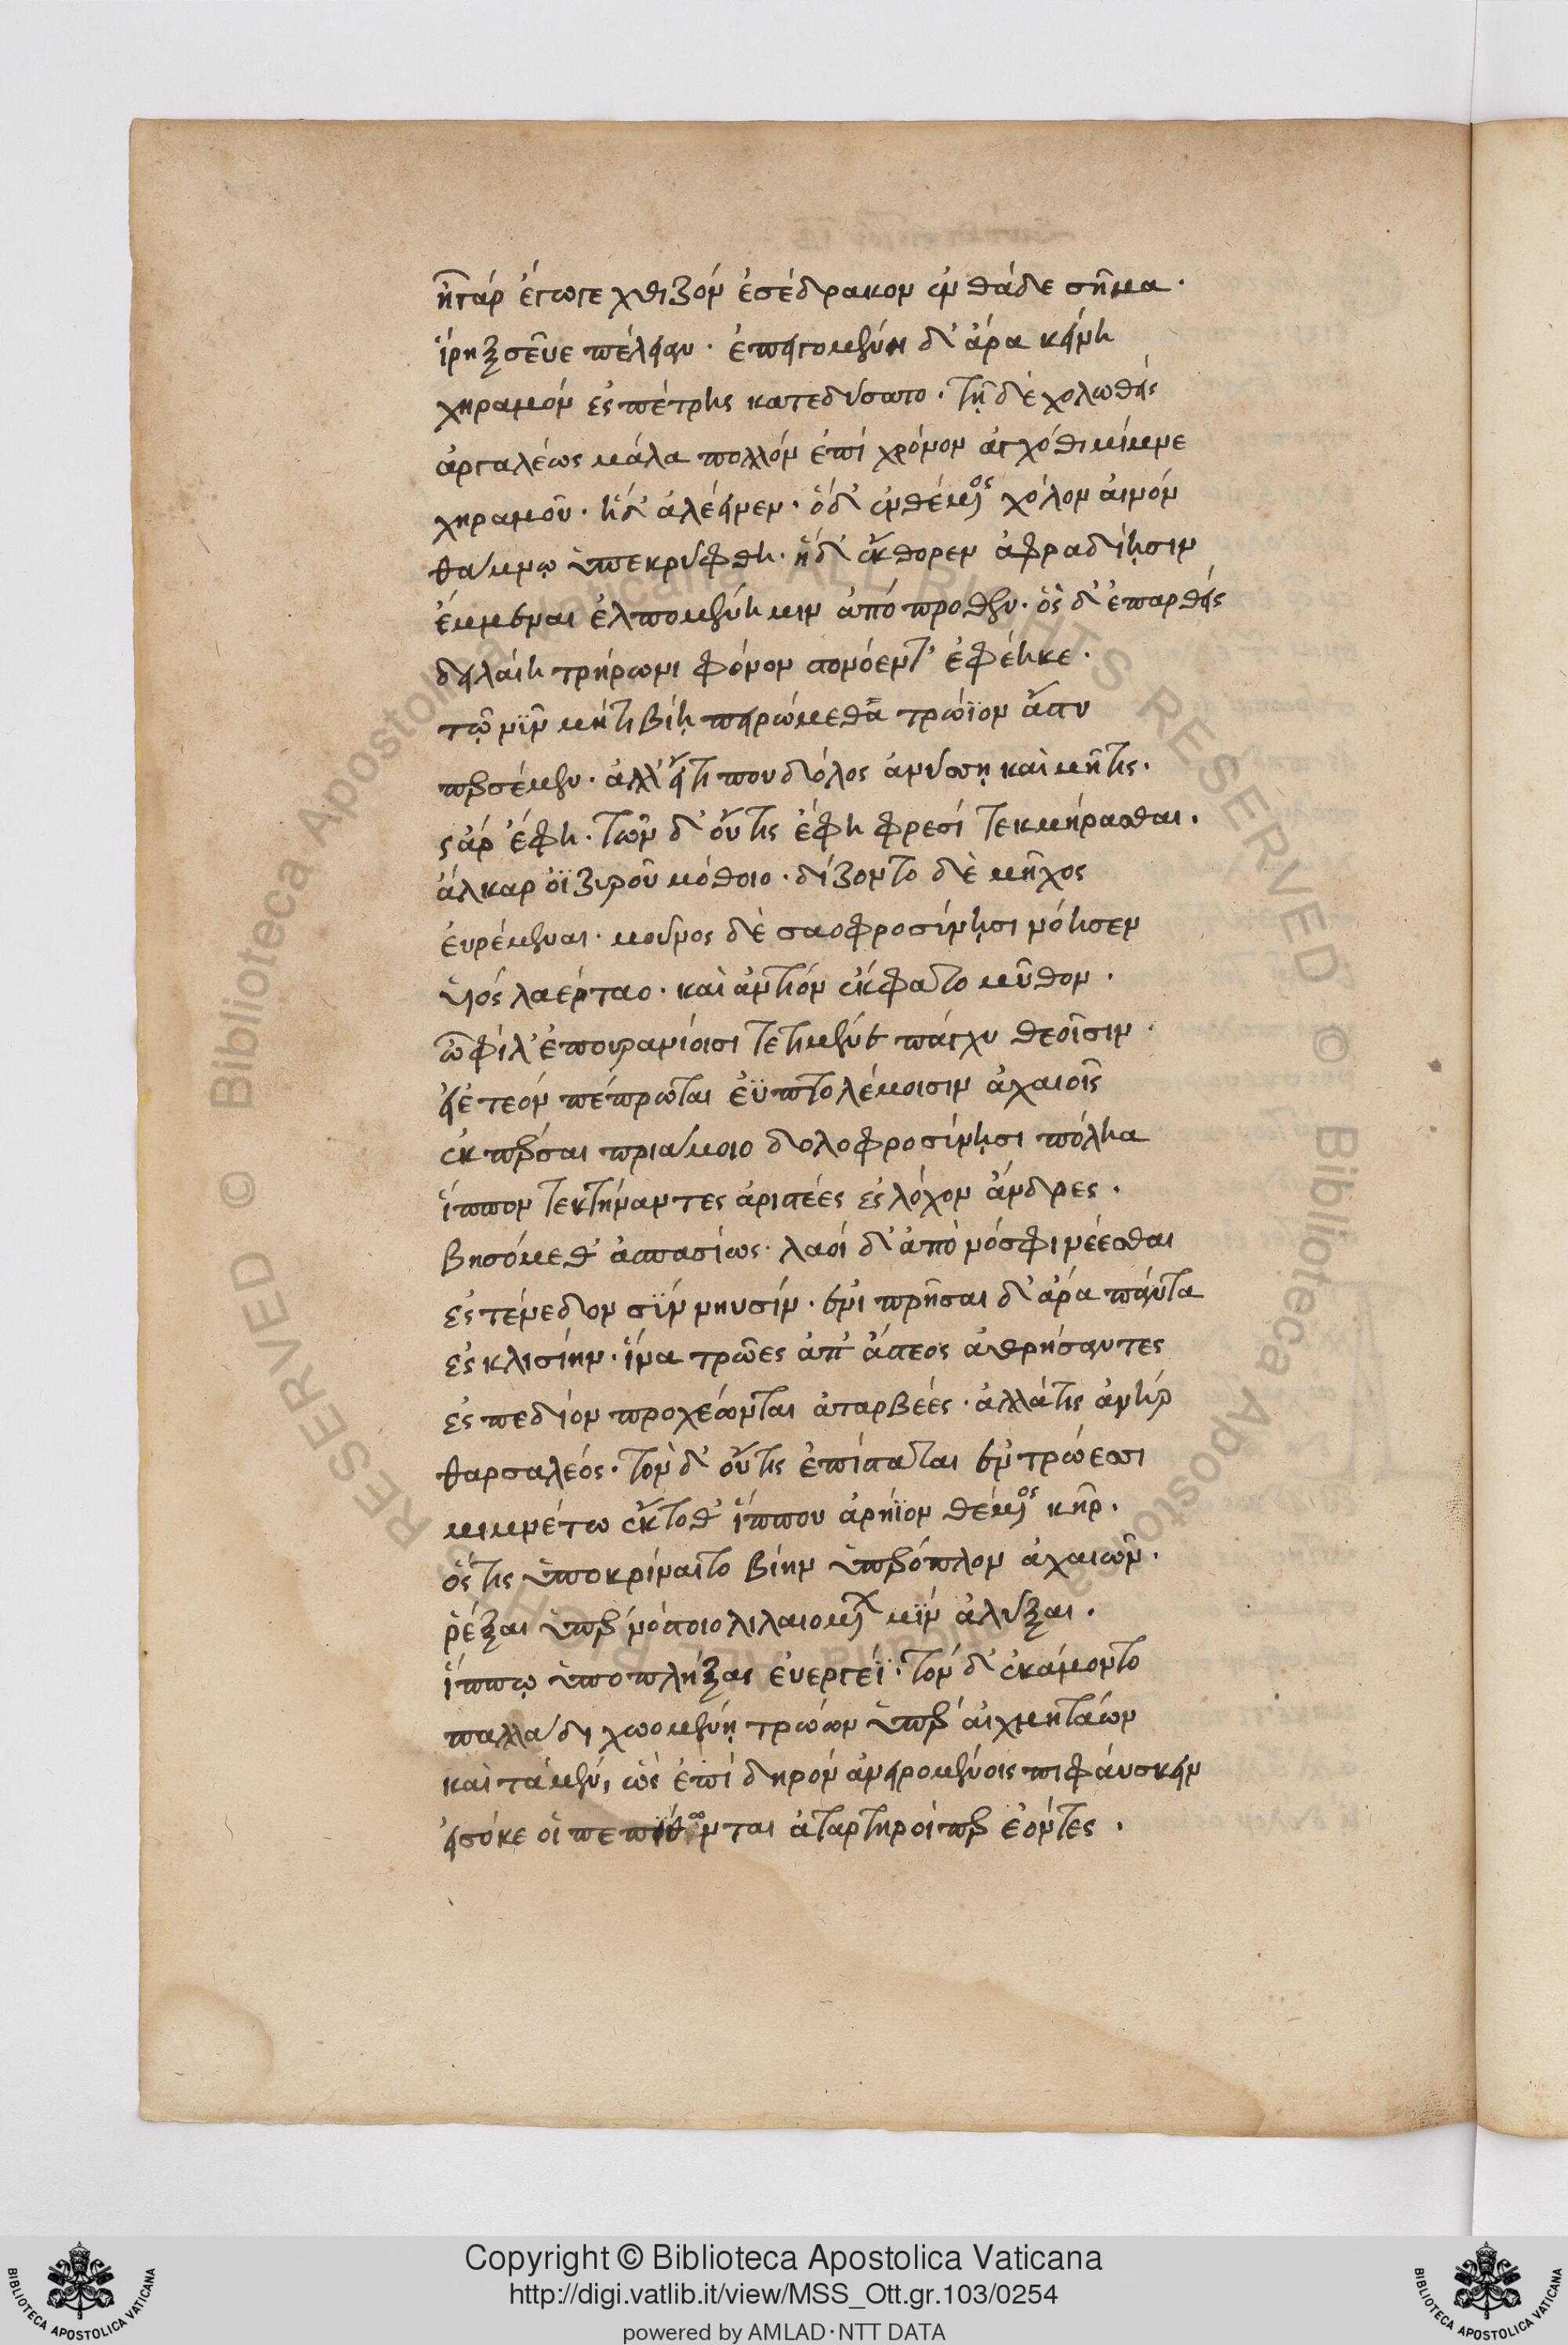 ἦ γὰρ ἔγωγε χθιζὸν ἐσέδρακον ἐνθάδε σῆμα·
ἴρηξ σεῦε πέλειαν· ἐπειγομένη δ' ἄρα κείνη
χηραμὸν ἐς πέτρης κατεδύσατο· τῇ δὲ χολωθεὶς
ἀργαλέως μάλα πολλὸν ἐπὶ χρόνον ἀγχόθι μίμνε
χηραμοῦ· ἡ δ' ἀλέεινεν· ὁ δ' ἐνθέμενος χόλον αἰνὸν
θάμνῳ ὑπεκρύφθη· ἡ δ' ἔκθορεν ἀφραδίῃσιν
ἔμμεναι ἐλπομένη μιν ἀπόπροθεν· ὃς δ' ἐπαρθεὶς
δειλαίη τρήρωνι φόνον στονόεντ' ἐφέηκε·
τῷ νῦν μήτι βίῃ πειρώμεθα τρώϊον ἄστυ
περσέμεν· ἀλλ' εἴτι που δόλος ἀνύσσῃ καὶ μῆτις·
ς ἀρ ἔφη· τῶν δ' οὔτις ἔφη φρεσὶ τεκμήρασθαι·
ἄλκαρ ὀϊζυροῦ μόθοιο· δίζοντο δὲ μῆχος
εὑρέμεναι· μοῦνος δὲ σαοφροσύνῃσι νόησεν
υἱὸς λαέρταο· καὶ ἀντίον ἔκφατο μῦθον·
ὦ φίλ' ἐπουρανίοισι τετιμένε πάγχυ θεοῖσιν·
εἰ ἐτεὸν πέπρωται ἐϋπτολέμοισιν ἀχαιοῖς
ἐκπέρσαι πριάμοιο δολοφροσύνῃσι πόληα
ἵππον τεκτήναντες ἀριστέες ἐς λόχον ἄνδρες·
βησόμεθ' ἀσπασίως· λαοὶ δ' ἀπὸ νόσφι νέεσθαι
ἐς τένεδον σὺν νηυσίν· ἐνὶ πρῆσαι δ' ἄρα πάντα
ἐς κλισίην· ἵνα τρῶες ἀπ' ἄστεος ἀθρήσαντες
ἐς πεδίον προχέωνται ἀταρβέες· ἀλλά τις ἀνὴρ
θαρσαλέος· τὸν δ' οὔτις ἐπίσταται ἐν τρώεσσι
μιμνέτω ἔκτοθ' ἵππου ἀρήϊον θέμενος κῆρ·
ὅς τις ὑποκρίναιτο βίην ὑπέροπλον ἀχαιῶν·
ῥέξαι ὑπὲρ νόστοιο λιλαιομένων μὶν ἀλύξαι·
ἵππῳ ὑποπλήξας εὐεργέϊ· τὸν δ' ἐκάμοντο
παλλάδι χωομένῃ τρώων ὑπὲρ αἰχμητάων
καὶ τὰ μὲν, ὡς ἐπὶ δηρὸν ἀνειρομένοις πιφάυσκειν
εἰσόκε οἱ πεπίθωνται ἀταρτηροὶ περ ἐόντες·
Copyright © Biblioteca Apostolica Vaticana
http://digi.vatlib.it/view/MSS_Ott.gr.103/0254
powered by AMLAD·NTT DATA